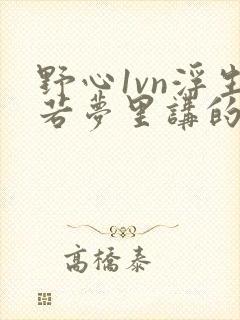 野心1vn浮生
若夢里講的
高橋泰